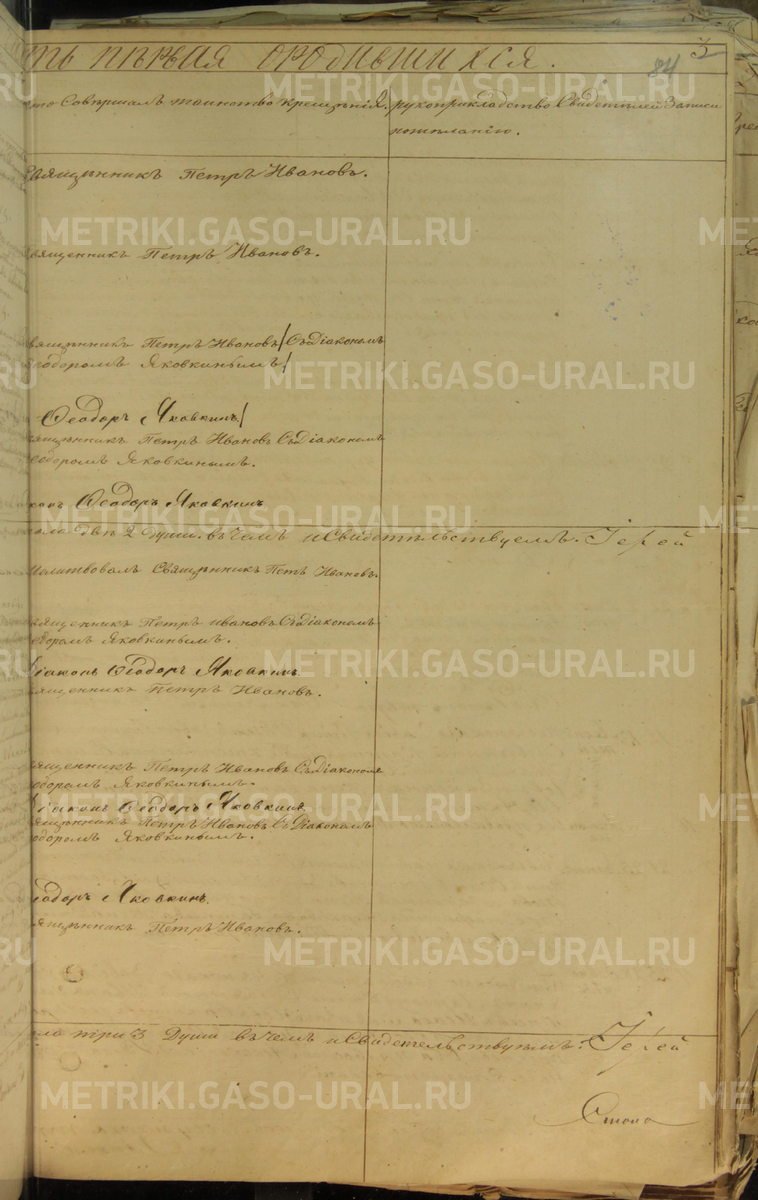 ть пѣрвая ородившихся.
3
84
то Совѣршалъ таинство крещѣнія.
рукоприкладство Свидетелей Записи
пожѣланію.
Священникъ Петръ Ивановъ.
вященникъ Петръ Ивановъ.
вященникъ Петръ Ивановъ / Съ Діакономъ
еодоромъ Яковкинымъ /
Ѳеодоръ Яковкинъ /
вященникъ Петръ Ивановъ Съ Діакономъ
еодоромъ Яковкинымъ.
конъ Ѳеодоръ Яковкинъ
двѣ 2 души. въ чемъ и Свидѣтѣльствуемъ. Іерей
Молитвовалъ Священникъ Петръ Ивановъ.
вященникъ Петръ ивановъ Съ Діакономъ
едоромъ Яковкинымъ.
Діаконъ Ѳеодоръ Яковкинъ.
вященникъ Петръ Ивановъ.
вященникъ Петръ Ивановъ Съ Діакономъ
одоромъ Яковкинымъ.
Діаконъ Ѳеодоръ Яковкинъ
вященникъ Петръ Ивановъ Съ Діакономъ
одоромъ Яковкинымъ.
еодоръ Яковкинъ.
вященникъ Петръ Ивановъ.
три 3 Души въ чемъ и Свидетельствуемъ. Іерей
METRIKI.GASO-URAL.RU